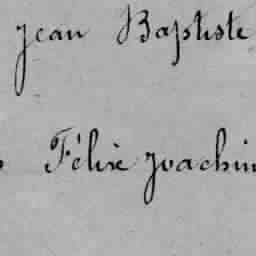 Jean Baptiste
Félix Joachim